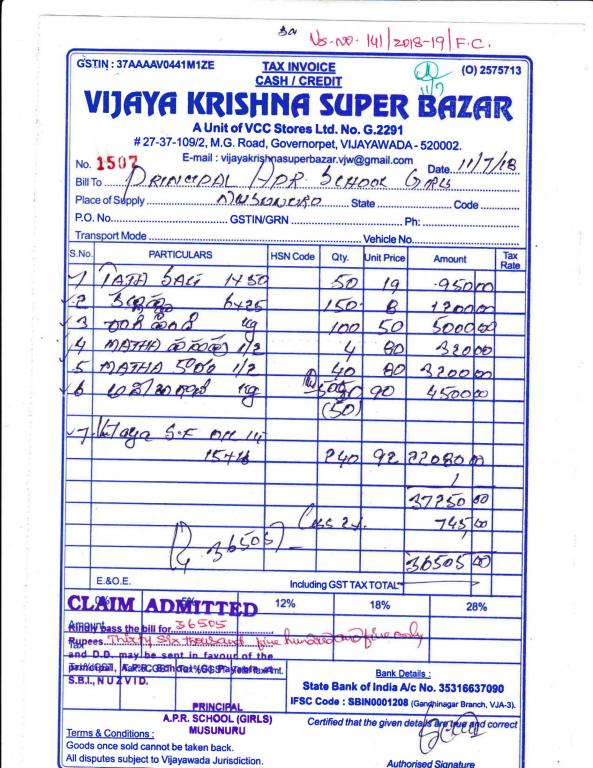 Ns. NO. 141/2018-19/F.C.
GSTIN : 37AAAAV0441M1ZE TAX INVOICE (O) 2575713
CASH / CREDIT
11/7
VIJAYA KRISHNA SUPER BAZAR
A Unit of VCC Stores Ltd. No. G.2291
# 27-37-109/2, M.G. Road, Governorpet, VIJAYAWADA - 520002.
E-mail : vijayakrishnasuperbazar.vjw@gmail.com
No. 1507 Date 11/7/18
Bill To PRINCIPAL APR SCHOOL GIRLS
Place of Supply State Code
P.O. No. GSTIN/GRN Ph:
Transport Mode Vehicle No.
S.No. PARTICULARS HSN Code Qty. Unit Price Amount Tax Rate
1 TATA SALT 1x50 50 19 950 00
2 6x25 150 8 1200 00
3 kg 100 50 5000 00
4 MATHA 1/2 4 80 320 00
5 MATHA 1/2 40 80 3200 00
6 kg 90 4500 00
(50)
7 Vijaya S.F Oil
15+1 240 92 22080 00
37250 00
Less 2%. 745 00
36505 36505 00
E.&O.E. Including GST TAX TOTAL
0% 5% 12% 18% 28%
CLAIM ADMITTED
Amount
Kindly pass the bill for 36505
Rupees Thirty Six thousand five hundred and five only
Tax
and D.D. may be sent in favour of the
S.B.I., NUZVID.
Bank Details :
State Bank of India A/c No. 35316637090
IFSC Code : SBIN0001208 (Gandhinagar Branch, VJA-3).
PRINCIPAL
A.P.R. SCHOOL (GIRLS)
MUSUNURU
Certified that the given details are true and correct
Terms & Conditions :
Goods once sold cannot be taken back.
All disputes subject to Vijayawada Jurisdiction.
Authorised Signature